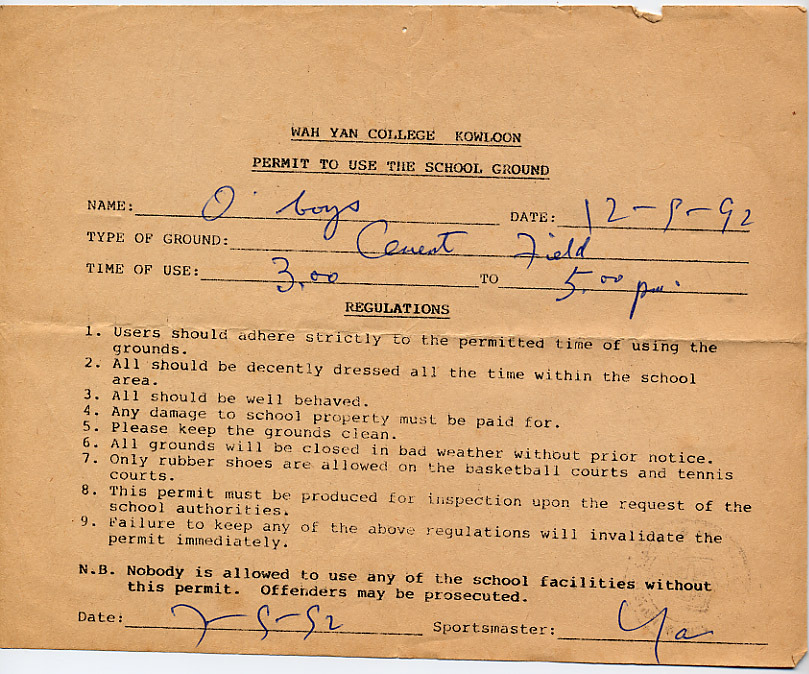 WAH YAN COLLEGE KOWLOON
PERMIT TO USE THE SCHOOL GROUND
NAME: O' boys DATE: 12-9-92
TYPE OF GROUND: Cement Field
TIME OF USE: 3.00 TO 5.00 pm.
REGULATIONS
1. Users should adhere strictly to the permitted time of using the
grounds.
2. All should be decently dressed all the time within the school
area.
3. All should be well behaved.
4. Any damage to school property must be paid for.
5. Please keep the grounds clean.
6. All grounds will be closed in bad weather without prior notice.
7. Only rubber shoes are allowed on the basketball courts and tennis
courts.
8. This permit must be produced for inspection upon the request of the
school authorities.
9. Failure to keep any of the above regulations will invalidate the
permit immediately.
N.B. Nobody is allowed to use any of the school facilities without
this permit. Offenders may be prosecuted.
Date: 7-9-92 Sportsmaster: